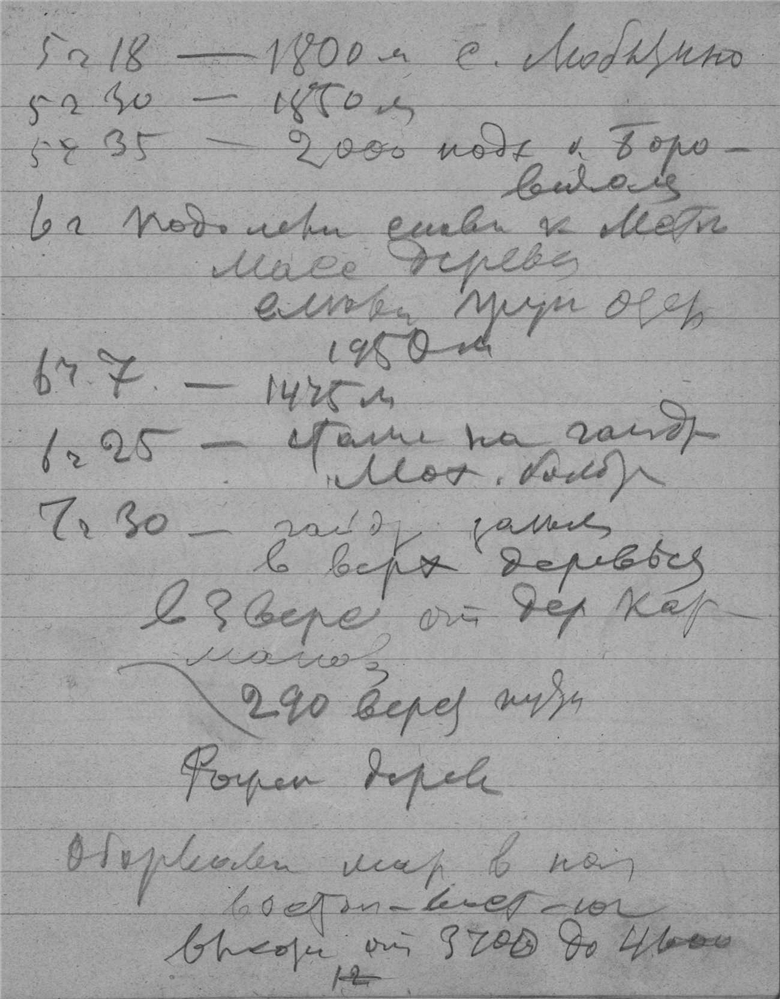 5 ч 18 — 1800 м с. Любицино
5 ч 30 — 1850 м
5 ч 35 — 2000 подх к Боро-
вичам
6 ч снова к Мсте
Масс деревья
снова груп озер
1950 м
6 ч. 7. — 1475 м
6 ч 25 — Стали на гайдр
Мох. болот
7 ч 30 — гайдр.
в верх деревьев
в 3 верс от дер Кар-
манов
290 верст
дерев
Оборвали в
восточ-вост-юг
высоты от 3700 до 4000
12